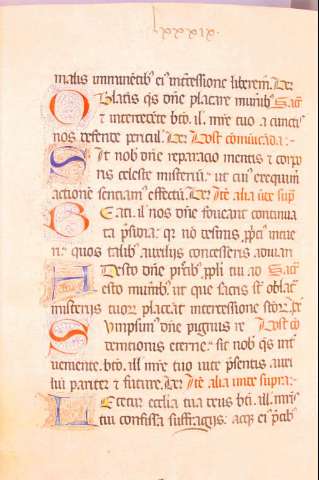 malis imminẽtibꝰ eiꝰ intercessione liberem̃. Per
Oblatis q̃s dñe placare munibꝰ Sacr̃
et intercedẽte bt̃o. ill. mr̃e tuo a cunctis
nos defende periculis. Per. Post comuicada:-
Sit nobis dñe reparacio mentis et corpo
ris celeste misteriũ: ut cuiꝰ exequimur
actione senciamꝰ effectũ. Per. Itẽ alia ũte sup̃
Beati. ill nos dñe foveant continua
ta p̃sidia: qr̃ nõ desinis p̃pici intue
ri: quos talibꝰ auxilijs concesseris adiuuari
Adesto dñe p̃cibꝰ ppli tui ad Sacr̃
esto munibꝰ. ut que sacris st̃ oblata
misterijs tuorum placeat intercessione st̃orum. p̃
Sumpsimꝰ dñe pignus re Post cõ
demtionis eterne: sit nobis q̃s int̃
ueniente. bt̃o. ill. mr̃e tuo vite p̃sentis auxi
liũ pariter et future. Per. Itẽ alia unde supra:-
Letetur ecclia tua deus bt̃i. ill. mr̃is
tui confissa suffragijs: atqꝫ eiꝰ p̃cibꝰ